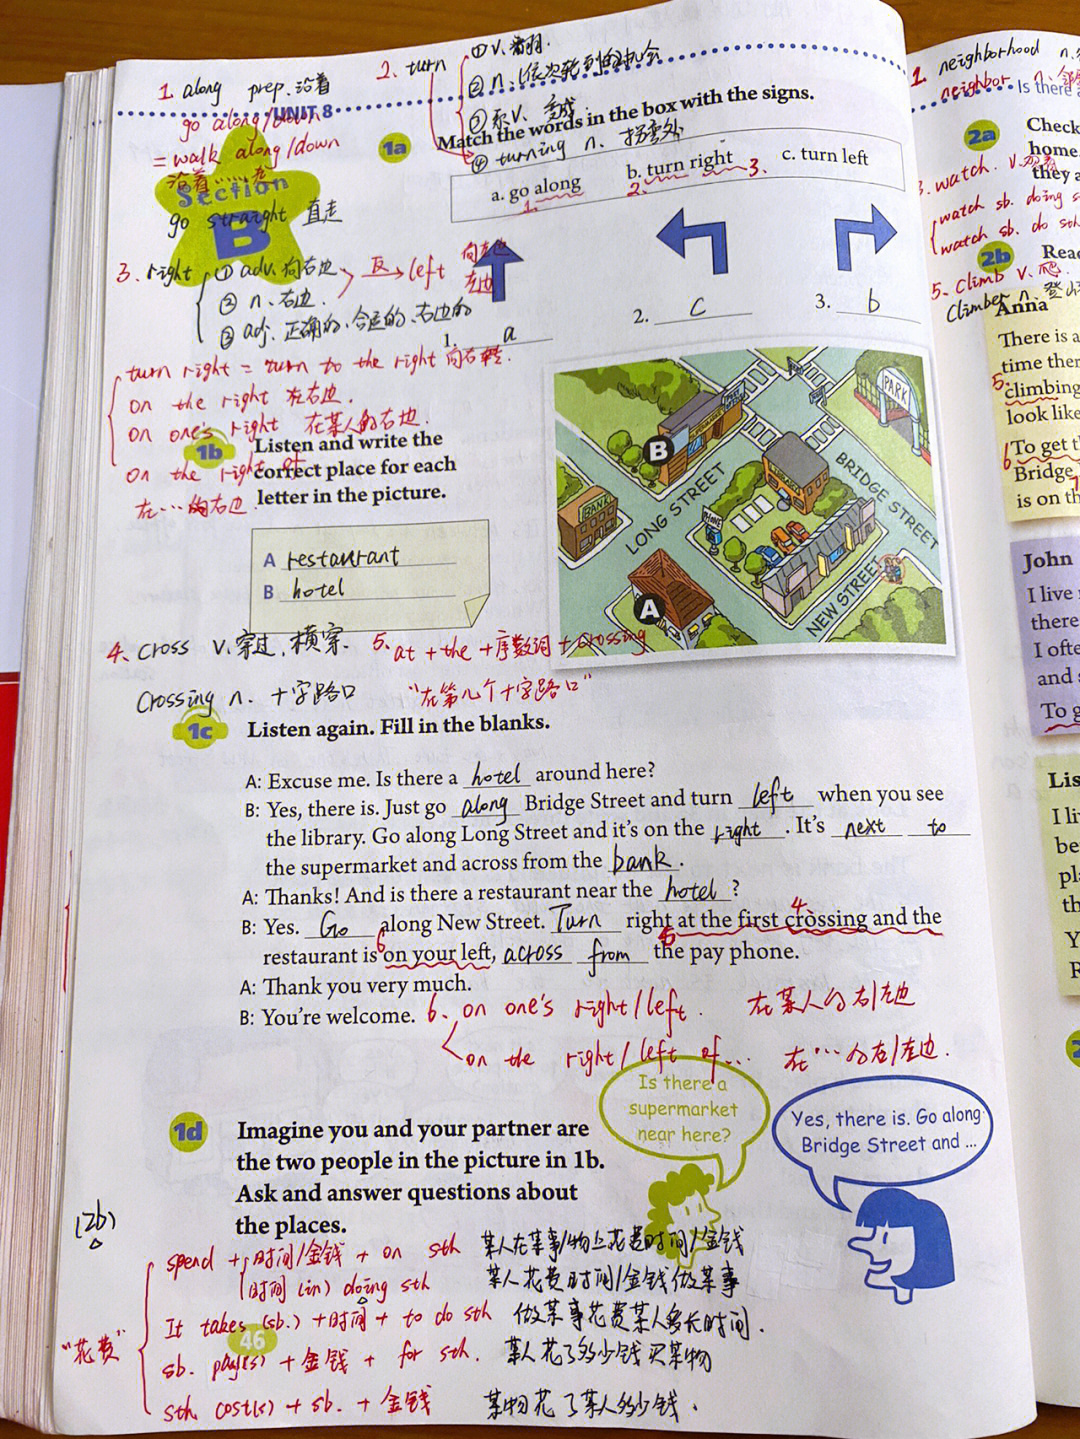 1. along prep. 沿着
2. turn
① v. 翻.
② n. 依次轮到的机会
③ 系v. 变成.
④ turning n. 拐弯处
UNIT 8
go along/down
= walk along/down
沿着……走
go straight 直走
Section
B
3. right
① adv. 向右边
② n. 右边.
③ adj. 正确的、合适的、右边的
反→left 向左边
左边
turn right = turn to the right 向右转.
on the right 在右边.
on one's right 在某人的右边.
on the right of
在…的右边
1a Match the words in the box with the signs.
a. go along
b. turn right
c. turn left
1.
2.
3.
1. a
2. C
3. b
1b Listen and write the
correct place for each
letter in the picture.
A restaurant
B hotel
PARK
B
BANK
LONG STREET
BRIDGE STREET
PHONE
A
NEW STREET
4. cross v. 穿过, 横穿.
5. at + the + 序数词 + crossing
crossing n. 十字路口
"在第几个十字路口"
1c Listen again. Fill in the blanks.
A: Excuse me. Is there a hotel around here?
B: Yes, there is. Just go along Bridge Street and turn left when you see
the library. Go along Long Street and it's on the right. It's next to
the supermarket and across from the bank.
A: Thanks! And is there a restaurant near the hotel?
4
B: Yes. Go along New Street. Turn right at the first crossing and the
6 5
restaurant is on your left, across from the pay phone.
A: Thank you very much.
B: You're welcome.
6. on one's right/left. 在某人的右/左边
on the right/left of… 在…的右/左边.
1d Imagine you and your partner are
the two people in the picture in 1b.
Ask and answer questions about
the places.
Is there a
supermarket
near here?
Yes, there is. Go along
Bridge Street and ...
(2b)
"花费"
spend + 时间/金钱 + on sth 某人在某事/物上花费时间/金钱
时间 (in) doing sth 某人花费时间/金钱做某事
It takes (sb.) + 时间 + to do sth 做某事花费某人多长时间.
sb. pay(s) + 金钱 + for sth. 某人花了多少钱买某物
sth. cost(s) + sb. + 金钱 某物花了某人多少钱.
46
1. neighborhood n.
neighbor n.
Is there
2a Check
home.
they a
3. watch. v.
watch sb. doing s
watch sb. do sth
2b Read
5. Climb v. 爬
Climber n. 登山
Anna
There is a
time ther
5. climbing
look like
6 To get t
Bridge
is on th
John
I live
there
I ofte
and
To g
Lis
I li
be
pl
th
Y
R